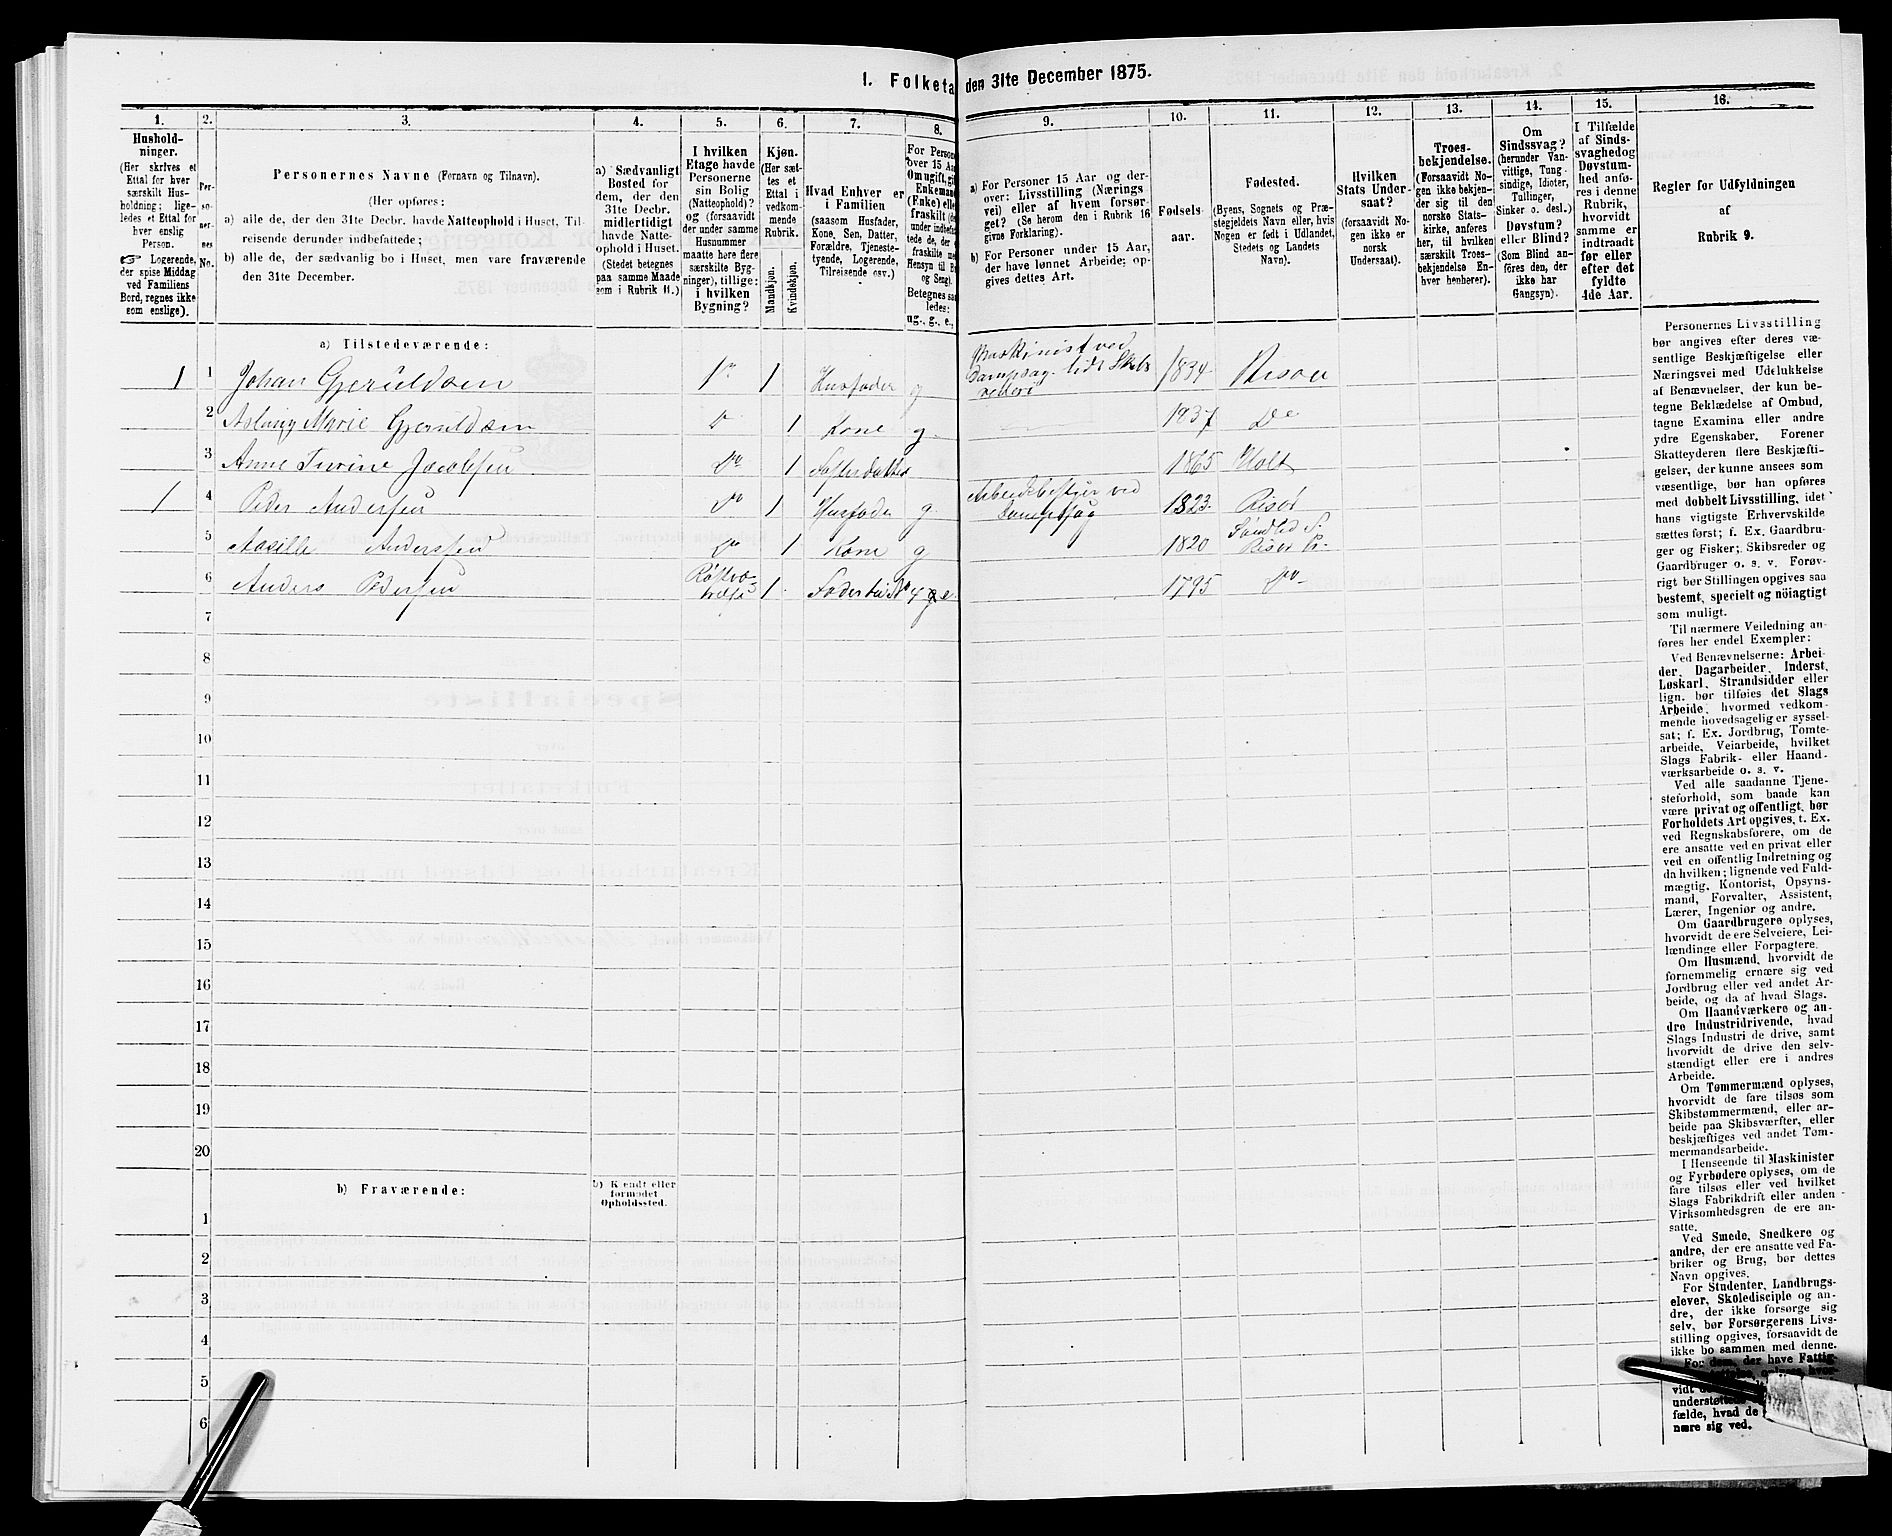 1. Folketa den 31te December 1875.
1. 2. 3. 4. 5. 6. 7. 8. 9. 10. 11. 12. 13. 14. 15. 16.
Hushold-
ninger.
(Her skrives et
Ettal for hver
særskilt Hus-
holdning; lige-
ledes et Ettal for
hver enslig
Person.
☞ Logerende,
der spise Middag
ved Familiens
Bord, regnes ikke
som enslige).
Per-
so-
ner-
nes
No.
Personernes Navne (Fornavn og Tilnavn).
(Her opføres:
a) alle de, der den 31te Decbr. havde Natteophold i Huset, Til-
reisende derunder indbefattede;
b) alle de, der sædvanlig bo i Huset, men vare fraværende
den 31te December.
a) Sædvanligt
Bosted for
dem, der den
31te Decbr.
midlertidigt
havde Natte-
ophold i Huset.
(Stedet betegnes
paa samme Maade
som i Rubrik 11.)
I hvilken
Etage havde
Personerne
sin Bolig
(Natteophold)?
og (forsaavidt
der under samme
Husnummer
maatte høre flere
særskilte Byg-
ninger), tillige:
i hvilken
Bygning?
Kjøn.
(Her sæt-
tes et
Ettal i
vedkom-
mende
Rubrik.
Mandkjøn.
Kvindekjøn.
Hvad Enhver er
i Familien
(saasom Husfader,
Kone, Søn, Datter,
Forældre, Tjeneste-
tyende, Logerende,
Tilreisende osv.)
For Person
over 15 Aa
Om ugift, gi
Enkemand
(Enke) elle
fraskilt (de
under indbefat-
tede de, der e
fraskilte me
Hensyn til B
og Seng).
Betegnes saa
ledes:
ug., g., e.,
a) For Personer 15 Aar og der-
over: Livsstilling (Nærings
vei) eller af hvem forsør-
get? (Se herom den i Rubrik 16
givne Forklaring).
b) For Personer under 15 Aar,
der have lønnet Arbeide; op-
gives dettes Art.
Fødsels-
aar.
Fødested.
(Byens, Sognets og Præ-
stegjeldets Navn eller, hvis
Nogen er født i Udlandet,
Stedets og Landets
Navn).
Hvilken
Stats Under-
saat?
(forsaavidt No-
gen ikke er
norsk
Undersaat).
Troes-
bekjendelse.
(Forsaavidt No-
gen ikke bekjen-
der sig til den
norske Stats-
kirke, anføres
her, til hvilken
særskilt Troes-
bekjendelse En-
hver henhører).
Om
Sindssvag?
(herunder Van-
vittige, Tung-
sindige, Idioter,
Tullinger,
Sinker o. desl.)
Døvstum?
eller Blind?
(Som Blind an-
føres den, der
ikke har
Gangsyn).
I Tilfælde
af Sinds-
svaghed og
Døvstum-
hed anfø-
res i denne
Rubrik,
hvorvidt
samme er
indtraadt
før eller
efter det
fyldte
4de Aar.
Regler for Udfyldningen
af
Rubrik 9.
a) Tilstedeværende:
1 1 Johan Gjeruldsen 1 1 Husfader g Maskinist ved Dampsag 1834
2 Marie Gjeruldsen 1 Kone g. 1837 Do
3 Anne Jacobsen Do 1 1865 Holt
1 4 Peder Andersen Do 1 Husfader g. ved Dampsag 1823. Risør
5 Anderssen Do 1 Kone g 1820 Risør Pr.
6 Anders Pedersen 1. e. 1795 Do
7
8
9
10
11
12
13
14
15
16
17
18
19
20
b) Fraværende:
b) Kjendt eller
formodet
Opholdssted.
1
2
3
4
5
6
Personernes Livsstilling
bør angives efter deres væ-
sentlige Beskjæftigelse eller
Næringsvei med Udelukkelse
af Benævnelser, der kun be-
tegne Beklædelse af Ombud,
tagne Examina eller andre
ydre Egenskaber. Forener
Skatteyderen flere Beskjæfti-
gelser, der kunne ansees som
væsentlige, bør han opføres
med dobbelt Livsstilling, idet
hans vigtigste Erhvervskilde
sættes først; f. Ex. Gaardbru-
ger og Fisker; Skibsreder og
Gaardbruger o. s. v. Forøv-
rigt bør Stillingen opgives saa
bestemt, specielt og nöiagtigt
som muligt.
Til nærmere Veiledning an-
føres her endel Exempler:
Ved Benævnelserne: Arbei-
der, Dagarbeider, Inderst,
Løskarl, Strandsidder eller
lign. bør tilføies det Slags
Arbeide, hvormed vedkom-
mende hovedsagelig er syssel-
sat; f. Ex. Jordbrug, Tomte-
arbeide, Veiarbeide, hvilket
Slags Fabrik- eller Haand-
værksarbeide o. s. v.
Ved alle saadanne Tjene-
steforhold, som baade kan
være privat og offentligt, bør
Forholdets Art opgives, f. Ex.
ved Regnskabsførere, om de
ere ansatte ved en privat eller
ved en offentlig Indretning og
da hvilken; lignende ved Fuld-
mægtig, Kontorist, Opsyns-
mand, Forvalter, Assistent,
Lærer, Ingeniør og andre.
Om Gaardbrugere oplyses,
hvorvidt de ere Selveiere, Lei-
lændinge eller Forpagtere.
Om Husmænd, hvorvidt de
fornemmelig ernære sig ved
Jordbrug eller ved andet Ar-
beide, og da af hvad Slags.
Om Haandværkere og an-
dre Industridrivende, hvad
Slags Industri de drive, samt
hvorvidt de drive den selv-
stændigt eller ere i andres
Arbeide.
Om Tømmermænd oplyses,
hvorvidt de fare tilsøs som
Skibstømmermænd, eller ar-
beide paa Skibsværfter, eller
beskjæftiges ved andet Tøm-
mermandsarbeide.
I Henseende til Maskinister
og Fyrbødere oplyses, om de
fare tilsøs eller ved hvilket
Slags Fabrikdrift eller anden
Virksomhedsgren de ere an-
satte.
Ved Smede, Snedkere og
andre, der ere ansatte ved Fa-
briker og Brug, bør dettes
Navn opgives.
For Studenter, Landbrugs-
elever, Skoledisciple og an-
dre, der ikke forsørge sig
selv, bør Forsørgerens Livs-
stilling opgives, forsaavidt de
ikke bo sammen med denne.
For dem, der have Fattig-
vidt
fælde, hvad de
nære sig ved.